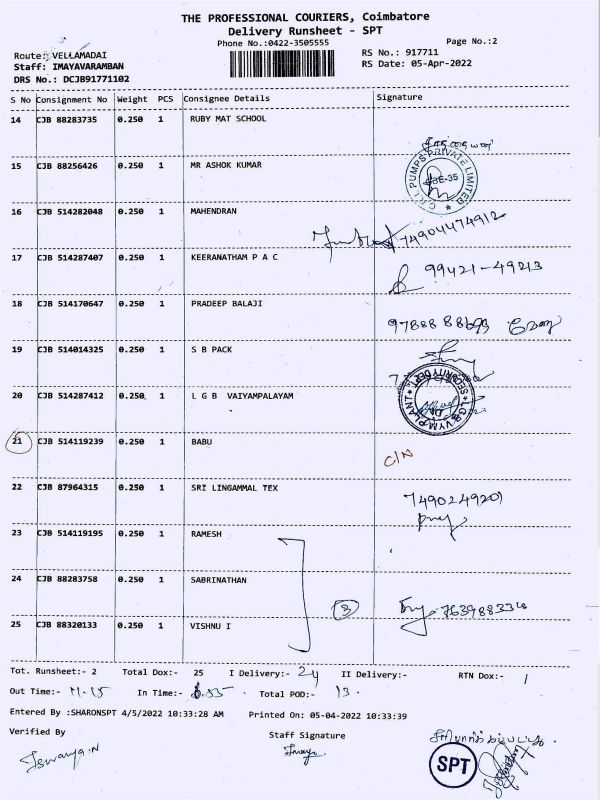 THE PROFESSIONAL COURIERS, Coimbatore
Delivery Runsheet - SPT
Phone No.:0422-3505555 Page No.:2
Route: VELLAMADAI RS No.: 917711
Staff: IMAYAVARAMBAN RS Date: 05-Apr-2022
DRS No.: DCJB91771102
S No Consignment No Weight PCS Consignee Details Signature
14 CJB 88283735 0.250 1 RUBY MAT SCHOOL
15 CJB 88256426 0.250 1 MR ASHOK KUMAR
PUMPS PRIVATE LIMITED
CBE-35
16 CJB 514282048 0.250 1 MAHENDRAN
74904474912
17 CJB 514287407 0.250 1 KEERANATHAM P A C
99421-49213
18 CJB 514170647 0.250 1 PRADEEP BALAJI
19 CJB 514014325 0.250 1 S B PACK
20 CJB 514287412 0.250 1 L G B VAIYAMPALAYAM
SECURITY DEPT
21 CJB 514119239 0.250 1 BABU C/N
22 CJB 87964315 0.250 1 SRI LINGAMMAL TEX
7490249201
23 CJB 514119195 0.250 1 RAMESH
24 CJB 88283758 0.250 1 SABRINATHAN
3
25 CJB 88320133 0.250 1 VISHNU I
Tot. Runsheet:- 2 Total Dox:- 25 I Delivery:- 24 II Delivery:- RTN Dox:- 1
Out Time:- 11.15 In Time:- Total POD:- 13
Entered By :SHARONSPT 4/5/2022 10:33:28 AM Printed On: 05-04-2022 10:33:39
Verified By Staff Signature
Iswarya.N
SPT